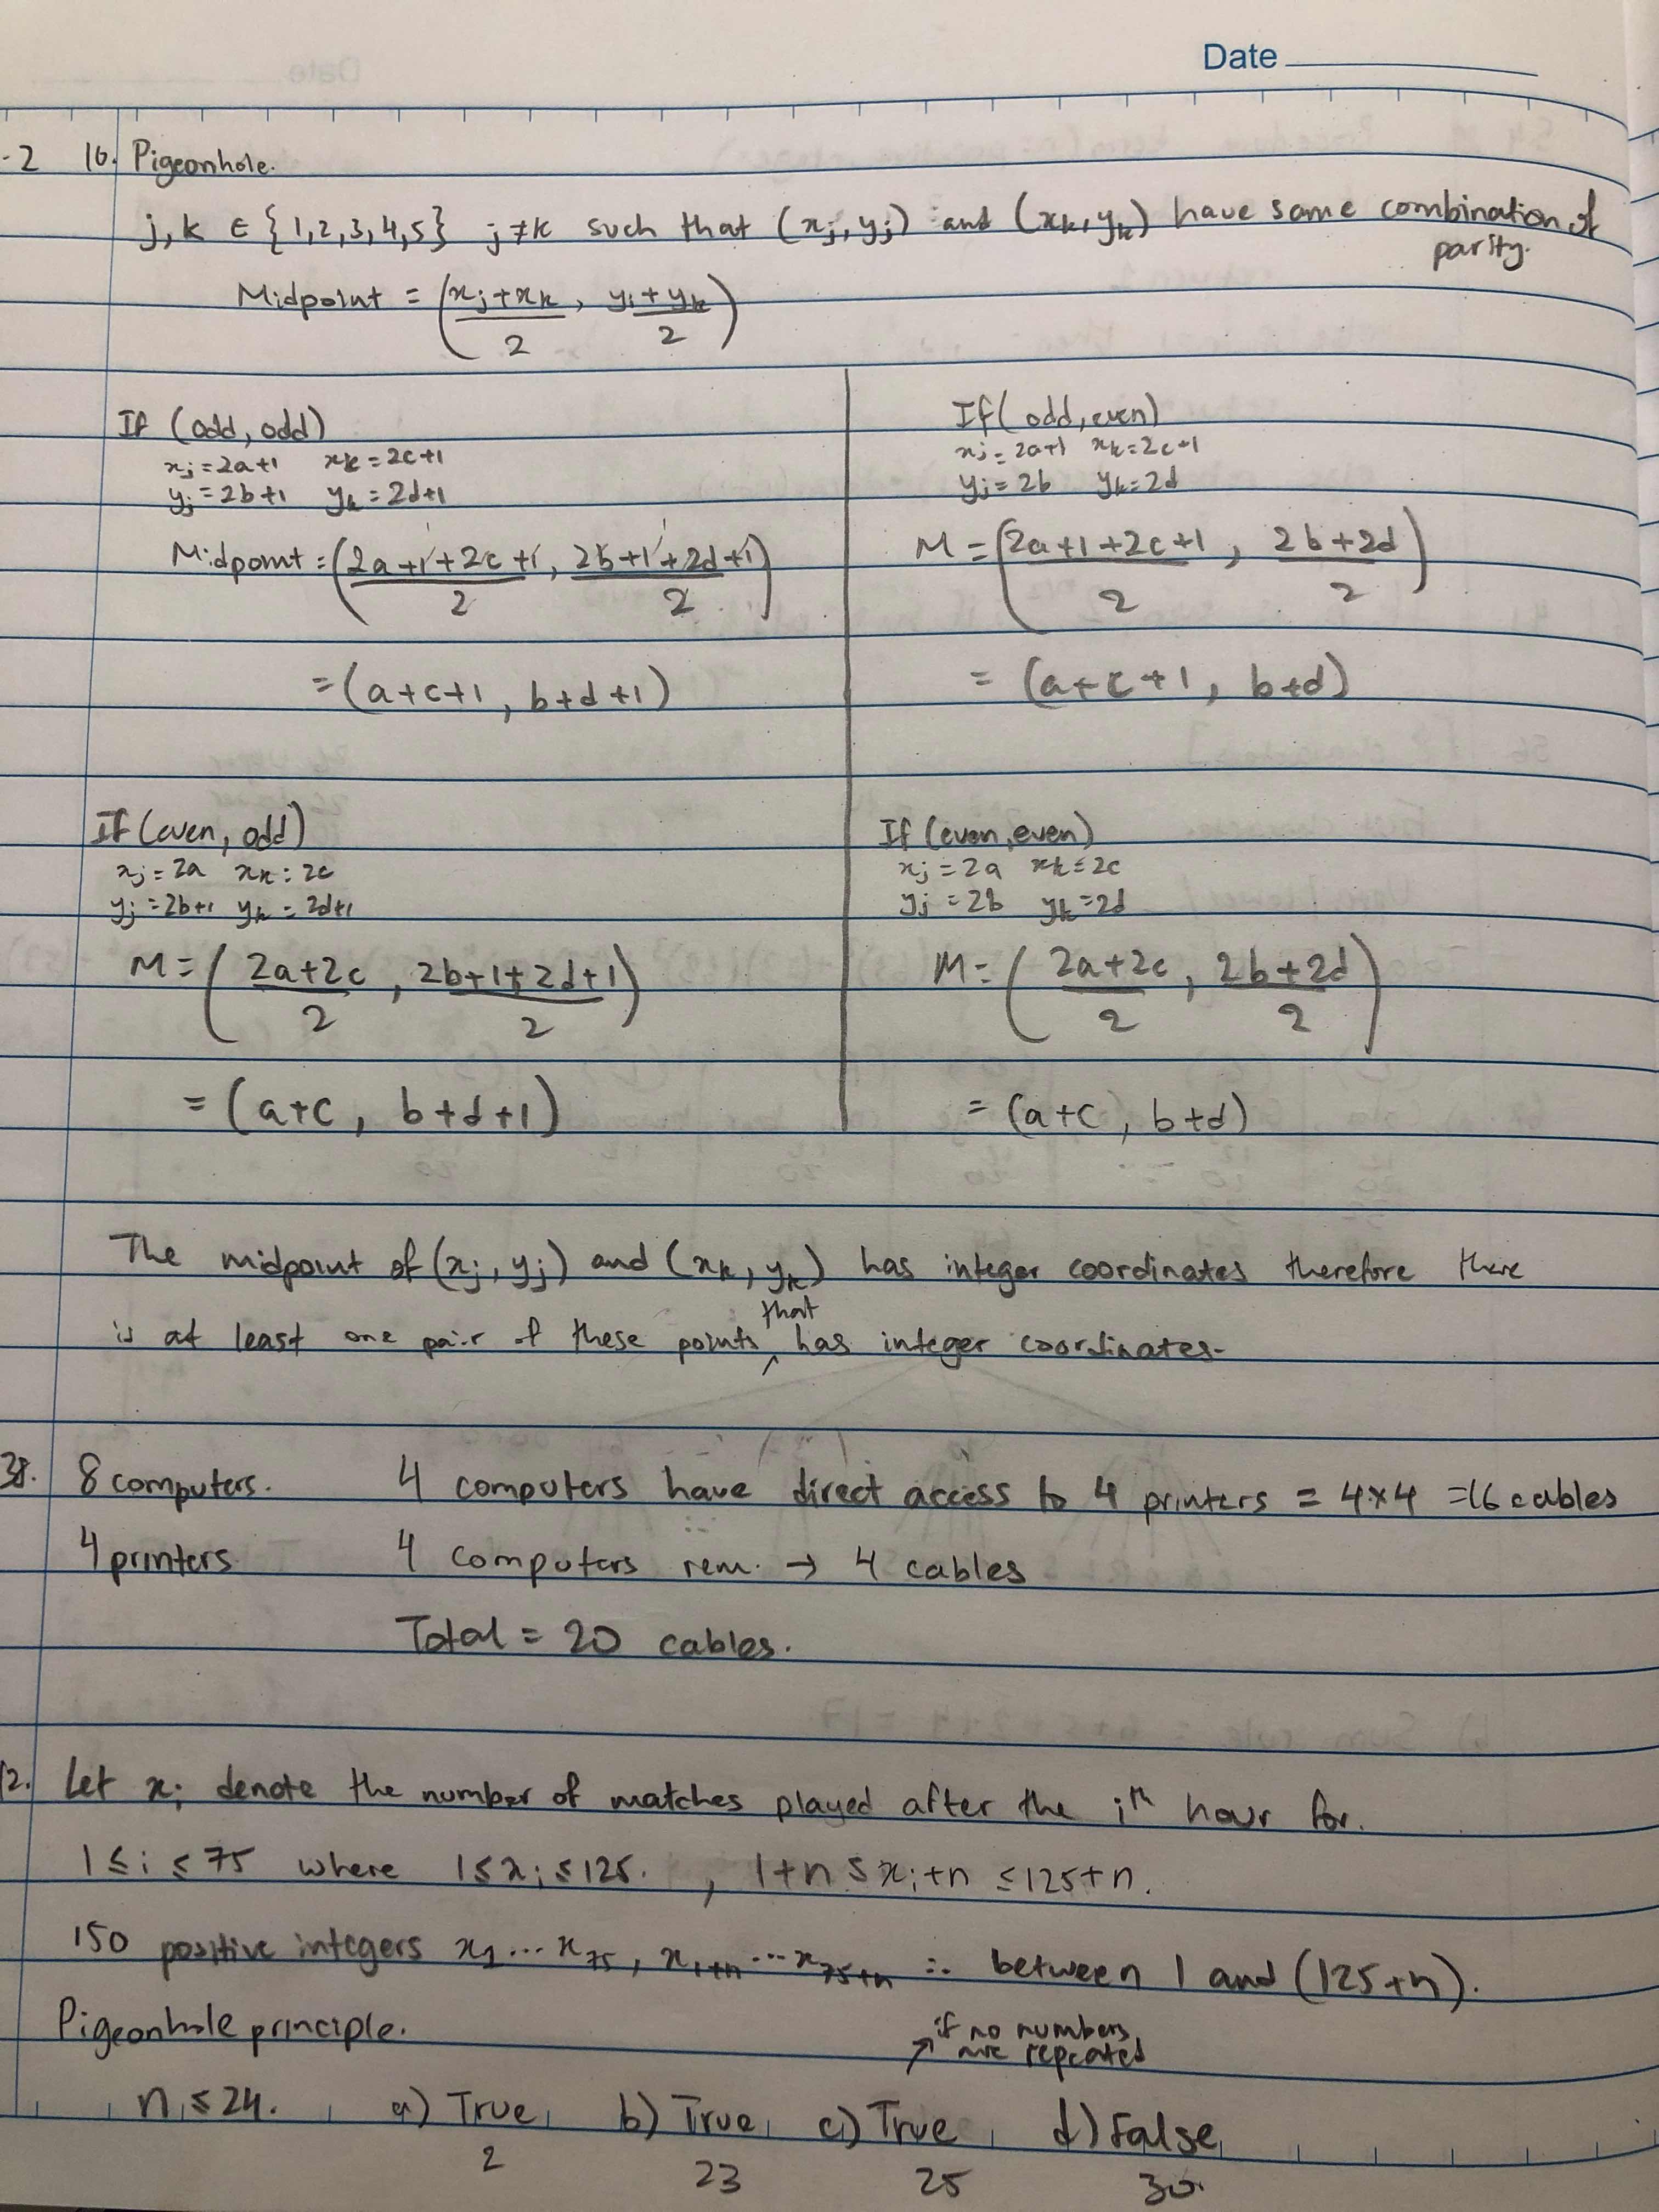 Date
-2 16. Pigeonhole.
j, k ∈ {1,2,3,4,5} j≠k such that (xj, yj) and (xk, yk) have same combination of
parity.
Midpoint = ((xj+xk)/2, (yj+yk)/2)
If (odd, odd)
xj = 2a+1 xk = 2c+1
yj = 2b+1 yk = 2d+1
Midpoint = ((2a+1+2c+1)/2, (2b+1+2d+1)/2)
= (a+c+1, b+d+1)
If (odd, even)
xj = 2a+1 xk = 2c+1
yj = 2b yk = 2d
M = ((2a+1+2c+1)/2, (2b+2d)/2)
= (a+c+1, b+d)
If (even, odd)
xj = 2a xk = 2c
yj = 2b+1 yk = 2d+1
M = ((2a+2c)/2, (2b+1+2d+1)/2)
= (a+c, b+d+1)
If (even, even)
xj = 2a xk = 2c
yj = 2b yk = 2d
M = ((2a+2c)/2, (2b+2d)/2)
= (a+c, b+d)
The midpoint of (xj, yj) and (xk, yk) has integer coordinates therefore there
is at least one pair of these points that has integer coordinates.
38. 8 computers. 4 computers have direct access to 4 printers = 4×4 = 16 cables
4 printers 4 computers rem. → 4 cables
Total = 20 cables.
2. Let xi denote the number of matches played after the ith hour for.
1 ≤ i ≤ 75 where 1 ≤ xi ≤ 125. , 1+n ≤ xi+n ≤ 125+n.
150 positive integers x1 ... x75, x1+n ... x75+n ∴ between 1 and (125+n).
Pigeonhole principle.
↗ if no numbers
are repeated
n ≤ 24. a) True b) True c) True d) False
2 23 25 30.